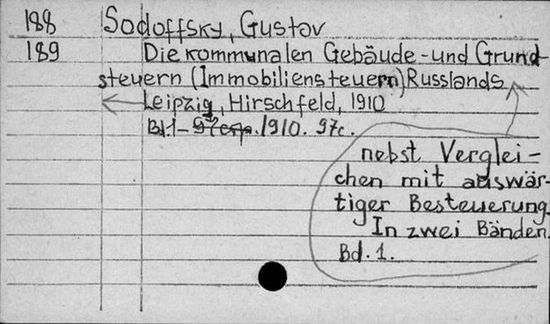 188 Sodoffsky, Gustav
189 Die kommunalen Gebäude- und Grund-
steuern (Immobiliensteuern) Russlands
Leipzig, Hirschfeld, 1910
Bd. 1 – 1910. 97c.
nebst Verglei-
chen mit auswär-
tiger Besteuerung.
In zwei Bänden.
Bd. 1.